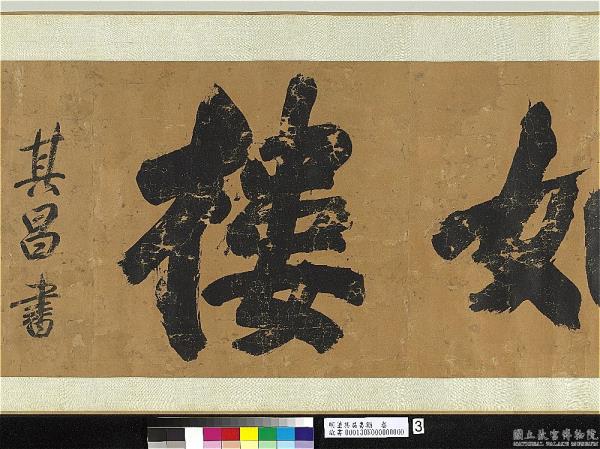 如樓
其昌書
明董其昌書額 卷
故書000130N000000000
3
國立故宮博物院
NATIONAL PALACE MUSEUM